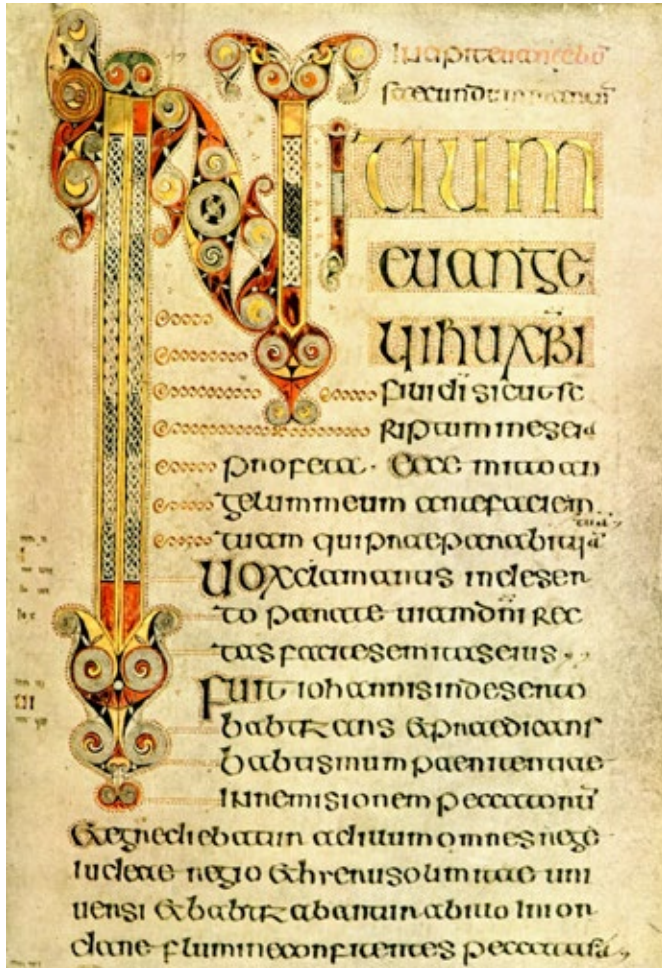 INITIUM
euange
lii ihu xpi
fili di sicut sc
riptum in esaia
profeta · Ecce mitto an
gelum meum ante faciem
tuam qui praeparabit uiā
Uox clamantis in deser
to parate uiam dni rec
tas facite semitas eius
Fuit iohannis in deserto
babtizans & praedicans
babtismum paenitentiae
in remisionem peccatorū
& egrediebatur ad illum omnes
iudeae regio & hierusolimitae uni
uersi & babtizabantur ab illo in ior
dane flumine confitentes peccata sua